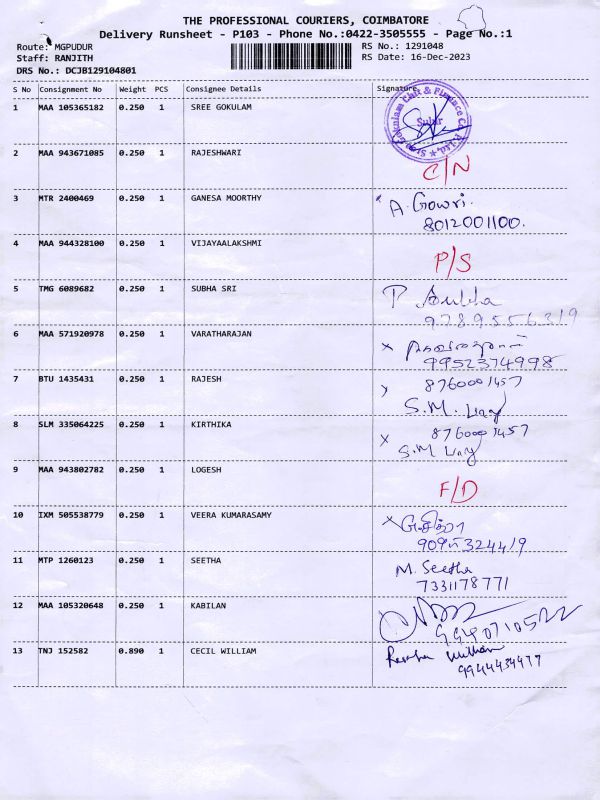 THE PROFESSIONAL COURIERS, COIMBATORE
Delivery Runsheet - P103 - Phone No.:0422-3505555 - Page No.:1
Route: MGPUDUR RS No.: 1291048
Staff: RANJITH RS Date: 16-Dec-2023
DRS No.: DCJB129104801
S No Consignment No Weight PCS Consignee Details Signature
1 MAA 105365182 0.250 1 SREE GOKULAM
2 MAA 943671085 0.250 1 RAJESHWARI
C/N
3 MTR 2400469 0.250 1 GANESA MOORTHY A. Gowri.
8012001100.
4 MAA 944328100 0.250 1 VIJAYAALAKSHMI
P/S
5 TMG 6089682 0.250 1 SUBHA SRI P
9789556319
6 MAA 571920978 0.250 1 VARATHARAJAN
9952374998
7 BTU 1435431 0.250 1 RAJESH 8760001457
S.M.
8 SLM 335064225 0.250 1 KIRTHIKA 8760001457
S.M
9 MAA 943802782 0.250 1 LOGESH
F/D
10 IXM 505538779 0.250 1 VEERA KUMARASAMY
11 MTP 1260123 0.250 1 SEETHA M. Seetha
7331178771
12 MAA 105320648 0.250 1 KABILAN
13 TNJ 152582 0.890 1 CECIL WILLIAM William
9944434477